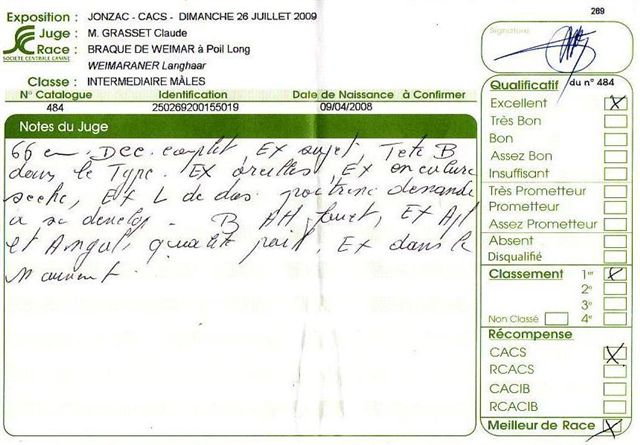 289
Exposition : JONZAC - CACS - DIMANCHE 26 JUILLET 2009
Juge : M. GRASSET Claude
Race : BRAQUE DE WEIMAR à Poil Long
SOCIÉTÉ CENTRALE CANINE
WEIMARANER Langhaar
Classe : INTERMEDIAIRE MÂLES
N° Catalogue Identification Date de Naissance à Confirmer
484 250269200155019 09/04/2008
Notes du Juge
66 cm. Dec. complet, Ex sujet, Tete B
dans le Type. Ex oreilles, Ex encolure
seche, Ex L de dos poitrine demande
a se develop. B Att fouet, Ex Apl
et Angul, qualité poil, Ex dans le
Mouvement.
Signature
Qualificatif du n° 484
Excellent X
Très Bon
Bon
Assez Bon
Insuffisant
Très Prometteur
Prometteur
Assez Prometteur
Absent
Disqualifié
Classement 1er X
2e
3e
Non Classé 4e
Récompense
CACS X
RCACS
CACIB
RCACIB
Meilleur de Race X